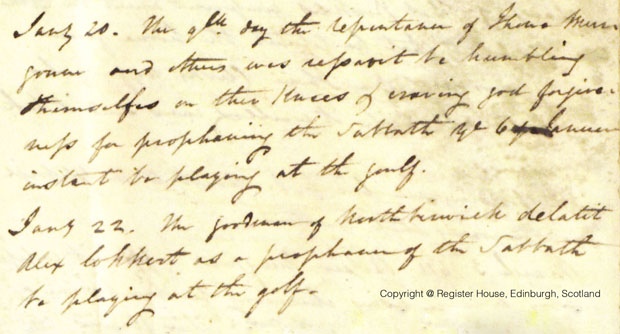 Jany 20. The qlk day the repentance of Thome Mun
goune and others was ressavit be humbling
themselfes on ther knees & craving god forgive
ness for prophaning the Sabbath ye 6
instant be playing at the goulf.
Jany 22. The goodman of Northberwick delatit
Alex Lokkert as a prophaner of the Sabbath
be playing at the golf.
Copyright @ Register House, Edinburgh, Scotland